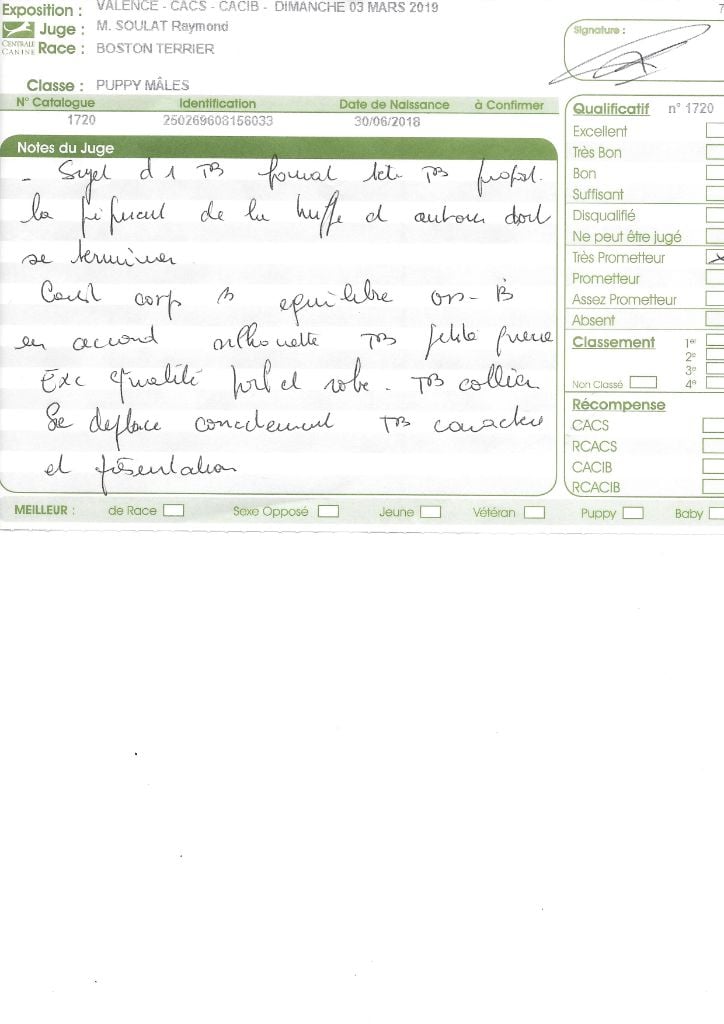 Exposition : VALENCE - CACS - CACIB - DIMANCHE 03 MARS 2019
Juge : M. SOULAT Raymond
CENTRALE CANINE
Race : BOSTON TERRIER
Classe : PUPPY MÂLES
N° Catalogue Identification Date de Naissance à Confirmer
1720 250269608156033 30/06/2018
Notes du Juge
- Sujet d 1 TB format tete TB propot.
la pigment de la truffe et autour doit
se terminer
corp B equilibre os - B
en accord silhouette TB petite
Exc qualité poil et robe - TB collier
Se deplace correctement TB caractere
et présentation
MEILLEUR : de Race Sexe Opposé Jeune Vétéran Puppy Baby
Signature :
Qualificatif n° 1720
Excellent
Très Bon
Bon
Suffisant
Disqualifié
Ne peut être jugé
Très Prometteur
Prometteur
Assez Prometteur
Absent
Classement 1er
2e
3e
Non Classé 4e
Récompense
CACS
RCACS
CACIB
RCACIB